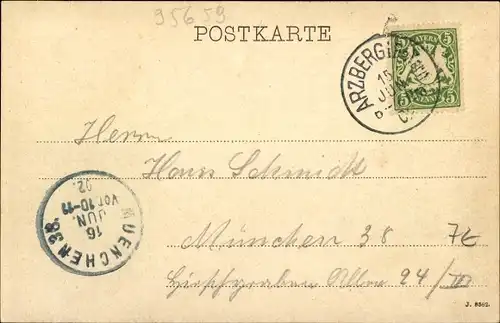 95659
POSTKARTE
ARZBERG
15
JUN
BAYERN
5
5
5
5
Herrn
Hans Schmidt
München 38
24/III
MUENCHEN 38.
16
JUN.
VOR.10-11
02.
J. 8562.